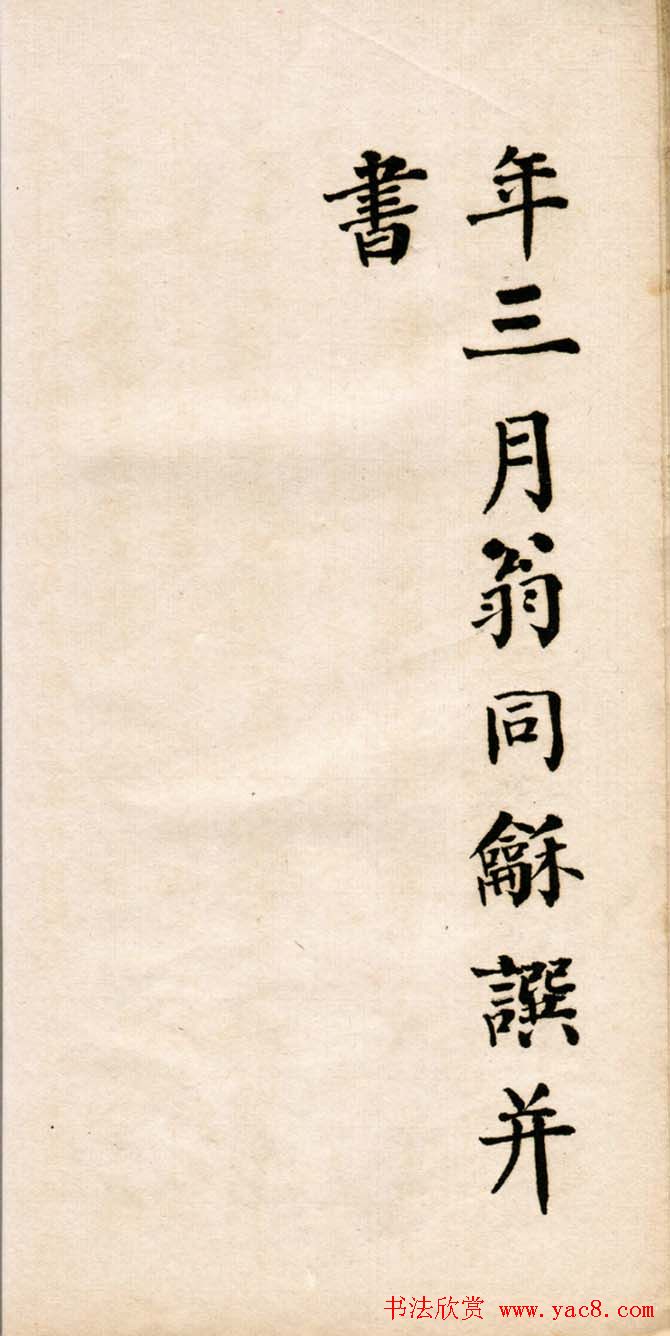 年三月翁同龢譔并
書
书法欣赏 www.yac8.com